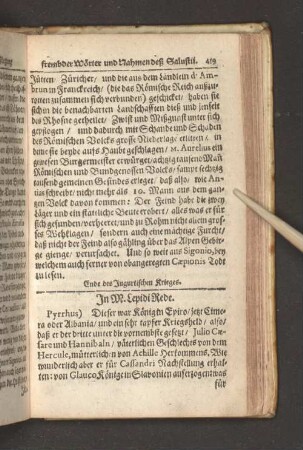 frembder Wörter und Nahmen deß Salustii. 419
Jütten Züricher/ und die aus dem Ländlein d' Am-
brun in Franckreich/ (die das Römische Reich außzu-
rotten zusammen sich verbunden) geschicket/ haben sie
sich in die benachbarten Landschafften dieß und jenseit
des Rhosne getheilet/ Zwist und Mißgunst unter sich
gepflogen/ und dadurch mit Schande und Schaden
des Römischen Volcks grosse Niderlage erlitten/ in
die sie beyde aufs Haubt geschlagen/ M. Aurelius ein
gwesen Burgermeister erwürget/ achtzig tausend Mañ
Römischen und Bundgenossen Volcks/ sampt sechzig
tausend gemeinen Gesindes erleget/ daß also wie An-
tius schreibt/ nicht mehr als 10. Mann aus dem gan-
tzen Volck davon kommen: Der Feind habe die zwey
Läger und ein stattliche Beute erobert/ alles was er für
sich gefunden/ verheeret/ und zu Rohm nicht allein gros-
ses Wehklagen/ sondern auch eine mächtige Furcht/
daß nicht der Feind also gähling über das Alpen Gebir-
ge gienge/ verursachet. Und so weit aus Sigonio, bey
welchem auch ferner von obangeregten Cæpionis Tode
zu lesen.
Ende des Jugurtischen Krieges.
In M. Lepidi Rede.
Pyrrhus) Dieser war König in Epiro/ jetzt Cime-
ra oder Albania/ und ein sehr tapfer Kriegsheld/ also/
daß er der dritte unter die vornembste gesetzt/ Julio Cæ-
sare und Hannibaln/ väterlichen Geschlechts von dem
Hercule, mütterlichen von Achille Herkommens, Wie
wunderlich aber er für Cassandri Nachstellung erhal-
ten: von Glauco König in Slavonien aufferzogen: was
für